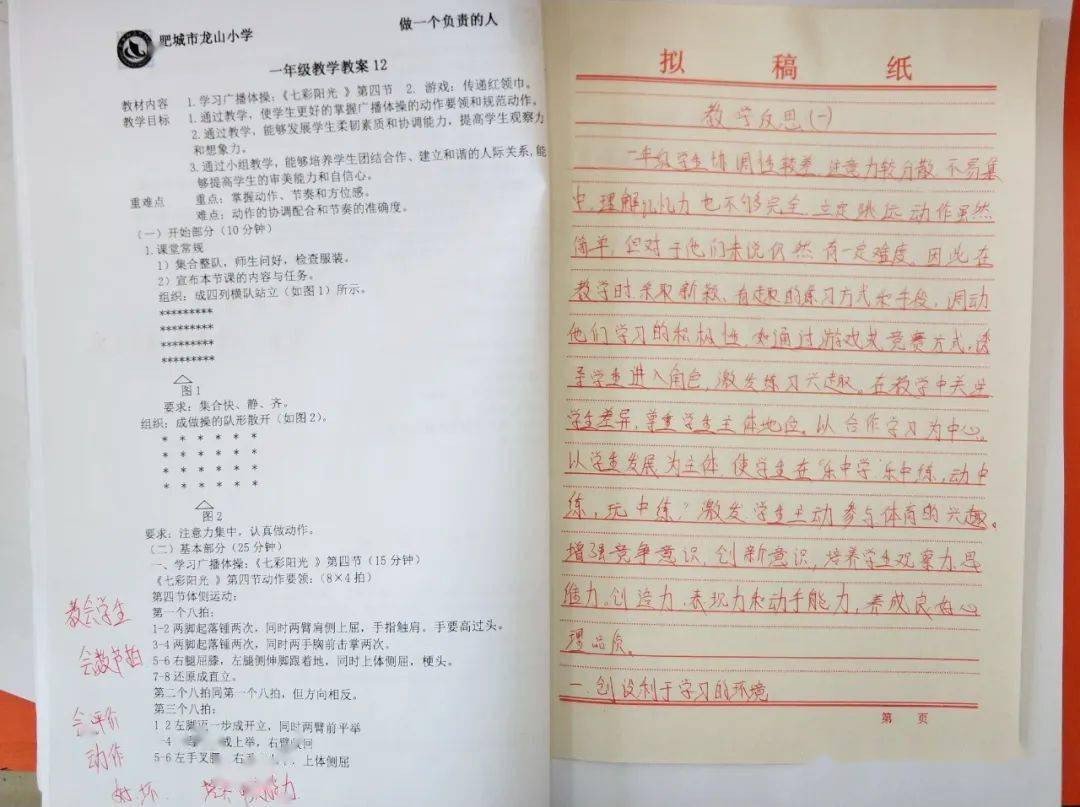 肥城市龙山小学
做一个负责的人
一年级教学教案12
教材内容 1.学习广播体操:《七彩阳光 》第四节 2. 游戏:传递红领巾。
教学目标 1.通过教学,使学生更好的掌握广播体操的动作要领和规范动作。
2.通过教学,能够发展学生柔韧素质和协调能力,提高学生观察力
和想象力。
3.通过小组教学,能够培养学生团结合作、建立和谐的人际关系,能
够提高学生的审美能力和自信心。
重难点 重点:掌握动作、节奏和方位感。
难点:动作的协调配合和节奏的准确度。
(一)开始部分(10分钟)
1.课堂常规
1)集合整队,师生问好,检查服装。
2)宣布本节课的内容与任务。
组织:成四列横队站立(如图1)所示。
*********
*********
*********
*********
图1
要求:集合快、静、齐。
组织:成做操的队形散开(如图2)。
* * * * * *
* * * * * *
* * * * * *
* * * * * *
图2
要求:注意力集中,认真做动作。
(二)基本部分(25分钟)
一、学习广播体操:《七彩阳光 》第四节(15分钟)
《七彩阳光 》第四节动作要领:(8×4拍)
第四节体侧运动:
第一个八拍:
1-2两脚起落锤两次,同时两臂肩侧上屈,手指触肩。手要高过头。
3-4两脚起落锤两次,同时两手胸前击掌两次。
5-6右腿屈膝,左腿侧伸脚跟着地,同时上体侧屈,梗头。
7-8还原成直立。
第二个八拍同第一个八拍,但方向相反。
第三个八拍:
1 2左脚迈一步成开立,同时两臂前平举
-4 成上举,右臂 回
5-6左手叉腰 右 上体侧屈
教会学生
会数节拍
会评价
动作
好坏
拟稿纸
教学反思(一)
一年级学生协调性较差,注意力较分散,不易集
中,理解记忆力也不够完全,立定跳远动作虽然
简单,但对于他们来说仍然有一定难度。因此在
教学时采取新颖、有趣的练习方式和手段,调动
他们学习的积极性,如通过游戏或竞赛方式,诱
导学生进入角色,激发练习兴趣。在教学中关注
学生差异,尊重学生主体地位。以合作学习为中心,
以学生发展为主体,使学生在“乐中学”乐中练,动中
练,玩中练”激发学生主动参与体育的兴趣。
增强竞争意识,创新意识,培养学生观察力,思
维力。创造力,表现力和动手能力,养成良好心
理品质。
一.创设利于学习的环境
第 页